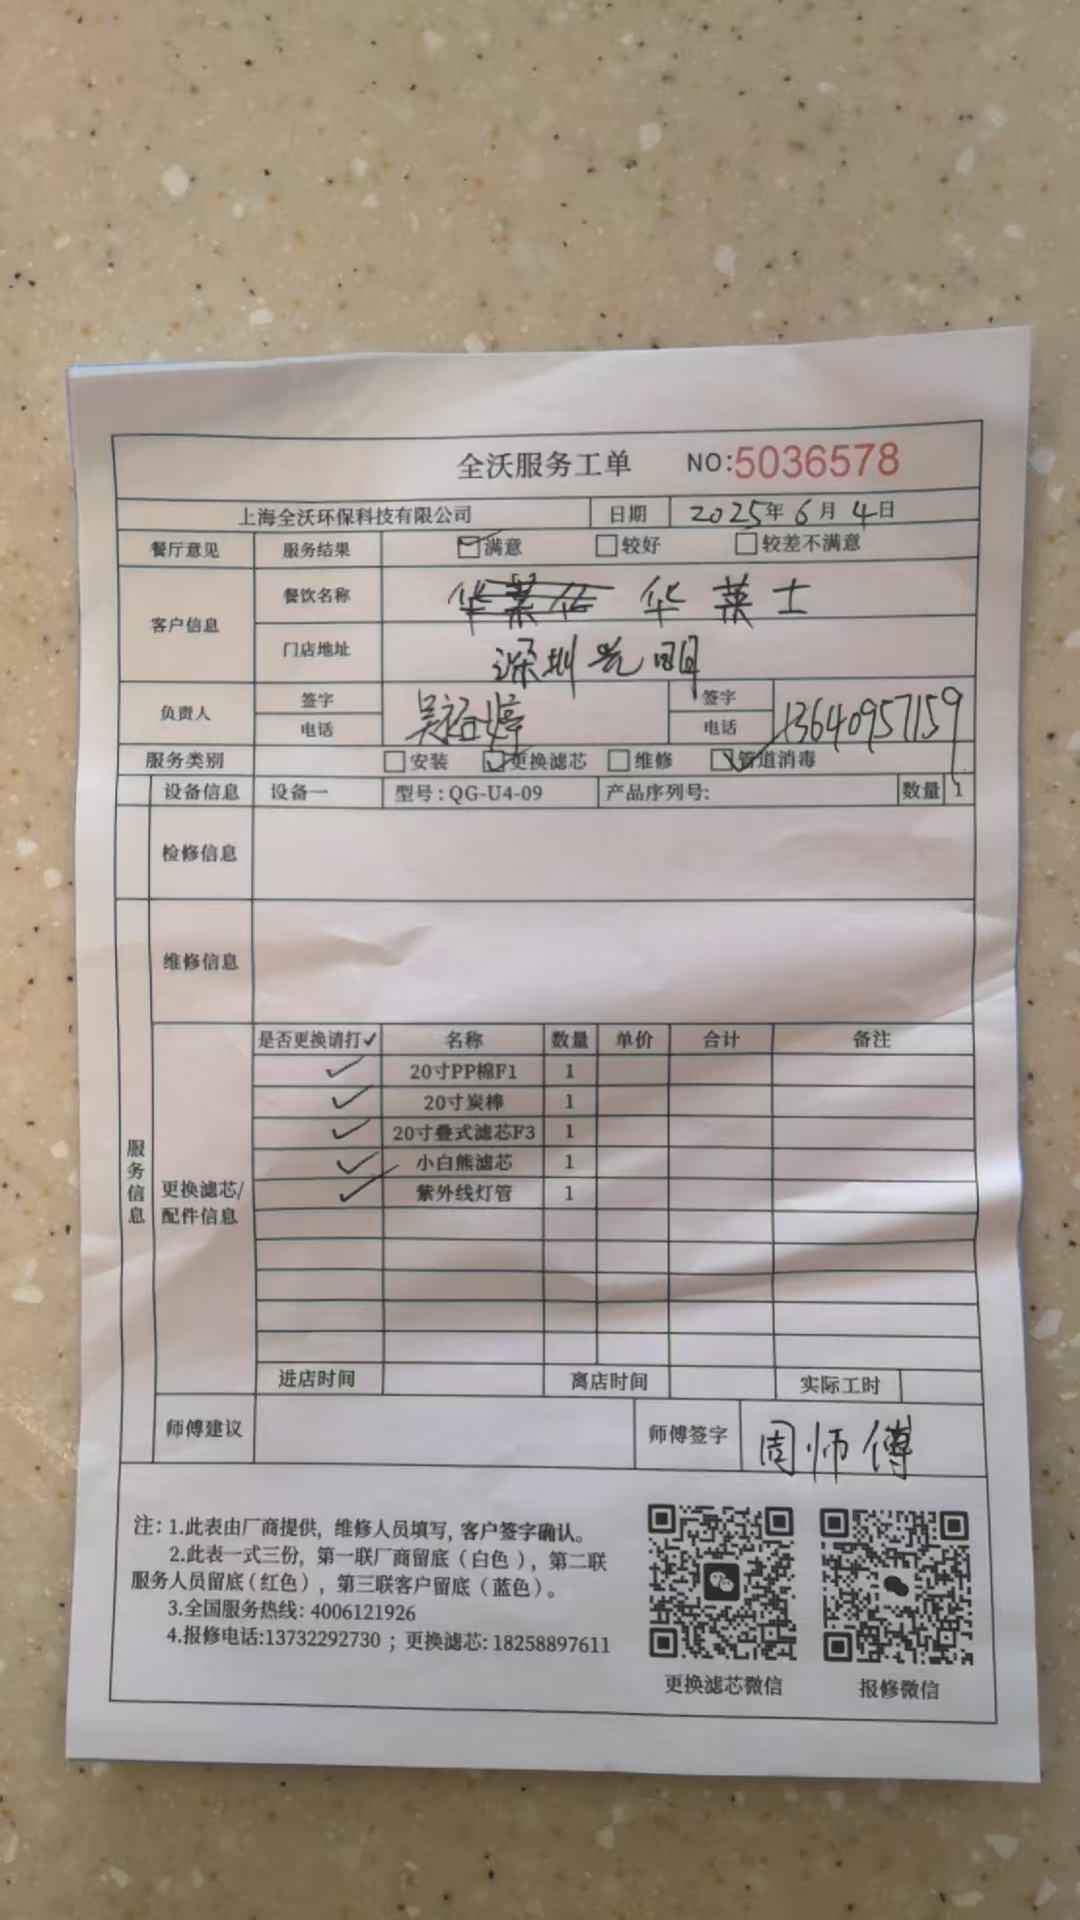 全沃服务工单 NO:5036578
上海全沃环保科技有限公司 日期 2025年6月4日
餐厅意见 服务结果 满意 较好 较差不满意
客户信息 餐饮名称 华莱士
门店地址 深圳光明
负责人 签字 吴裕婷 签字
电话 电话 13640957159
服务类别 安装 更换滤芯 维修 管道消毒
设备信息 设备一 型号：QG-U4-09 产品序列号： 数量 1
检修信息
维修信息
服务信息
更换滤芯/配件信息
是否更换请打✓ 名称 数量 单价 合计 备注
✓ 20寸PP棉F1 1
✓ 20寸炭棒 1
✓ 20寸叠式滤芯F3 1
✓ 小白熊滤芯 1
✓ 紫外线灯管 1
进店时间 离店时间 实际工时
师傅建议 师傅签字 周师傅
注：1.此表由厂商提供，维修人员填写，客户签字确认。
2.此表一式三份，第一联厂商留底（白色），第二联
服务人员留底（红色），第三联客户留底（蓝色）。
3.全国服务热线：4006121926
4.报修电话:13732292730；更换滤芯：18258897611
更换滤芯微信 报修微信